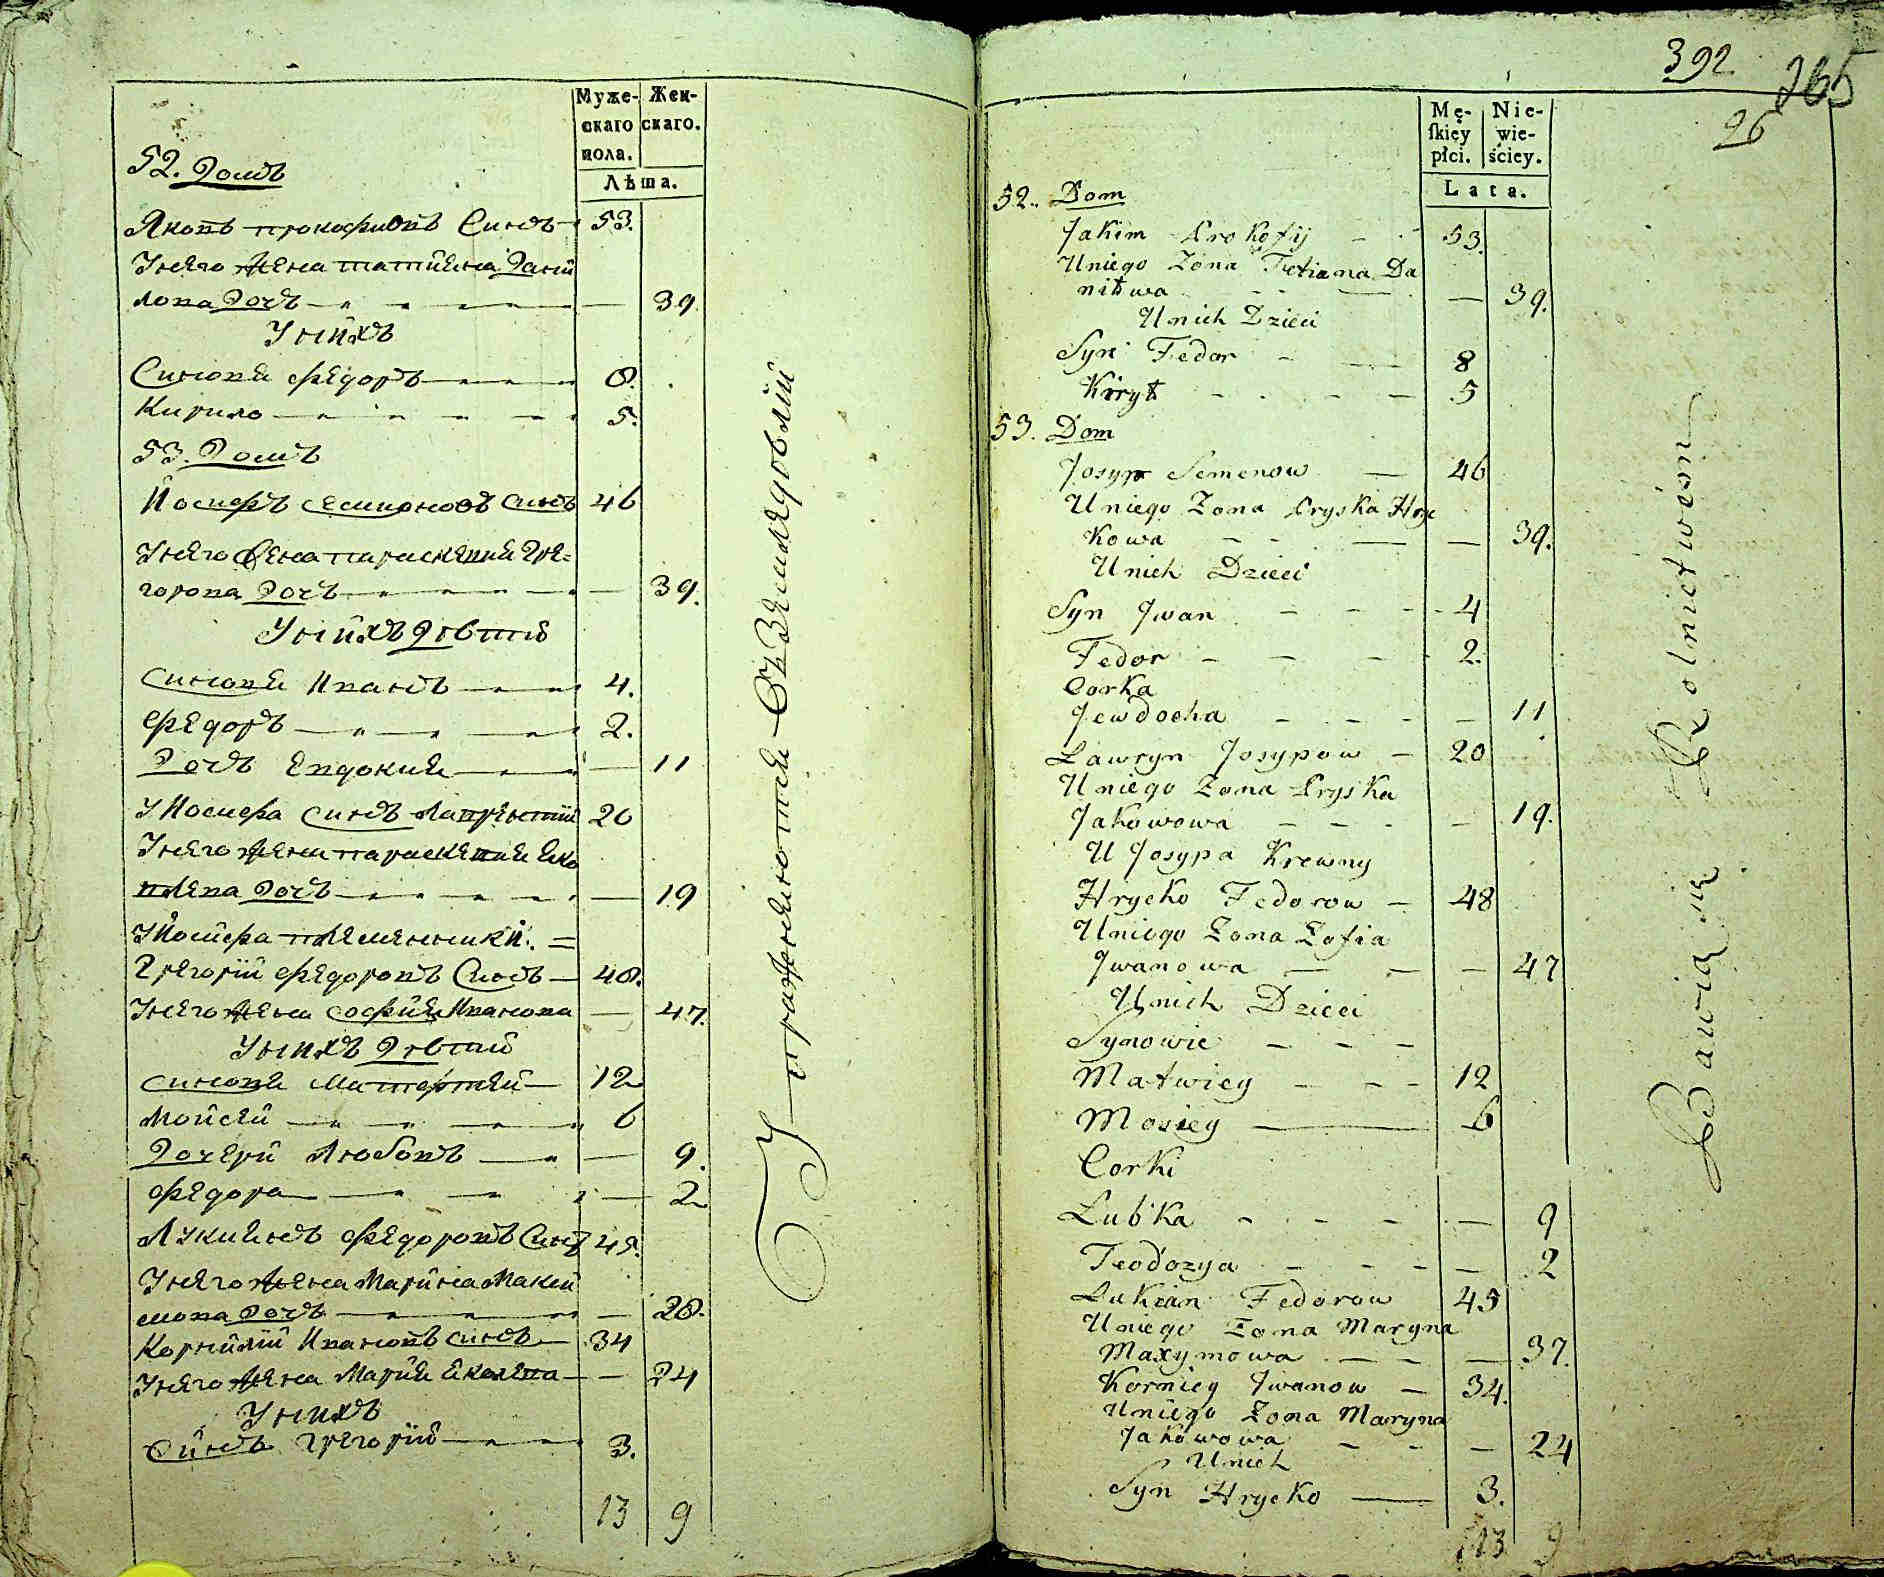 Муже-
скаго
пола.
Жен-
скаго.
Лѣта.
52. Домъ
Яковъ Прокофиовъ Синъ 53.
Унего Жена Татияна Данй
лова Дочь 39
Унйхъ
Синови Федоръ 8.
Кирило 5.
53. Домъ
Йосифъ Семионовъ Синъ 46
Унего Жена Параскевия Гре=
горова Дочь 39.
Унйхъ Дѣти
Синови Иванъ 4.
Федоръ 2.
Дочь Евдокия 11
У Иосифа Синъ Лаврентий 20
Унего Жена Параскевия Яко
влева Дочь 19
У Йосифа племенники. =
Грегорій Федоровъ Синъ 48.
Унего Жена София Иванова 47.
Унихъ Дѣти
Синови Матфтей 12
Мойсей 6
Дочери Любовь 9.
Федора 2
Лукиянъ Федоровъ Синъ 45.
Унего Жена Марина Макси
мова Дочь 28.
Корнйлій Ивановъ Синъ 34
Унего Жена Мария Яковлева 24
Унихъ
Синъ Грегорий 3.
13 9
Упражняются въ Земледѣлій
392
265
26
Mę-
ſkiey
płci.
Nie-
wie-
ściey.
Lata.
52. Dom
Jakim Prokofij 53.
Uniego Zona Tetiana Da
niłwa 39.
Unich Dzieci
Syn Fedor 8
Kirył 5
53. Dom
Josyp Semenow 46
Uniego Zona Pryska Hry
kowa 39.
Unich Dzieci
Syn Jwan 4
Fedor 2.
Corka
Jewdocha 11
Lawryn Josypow 20
Uniego Zona Pryska
Jakowowa 19.
U Josypa Krewny
Hrycko Fedorow 48
Uniego Zona Zofia
Jwanowa 47
Unich Dzieci
Synowie
Matwiey 12
Mosiey 6
Corki
Lubka 9
Teodozya 2
Lukian Fedorow 45
Uniego Zona Maryna
Maxymowa 37.
Korniey Jwanow 34.
Uniego Zona Maryna
Jakowowa 24
Unich
Syn Hrycko 3.
13 9
Bawią się Rolnictwem